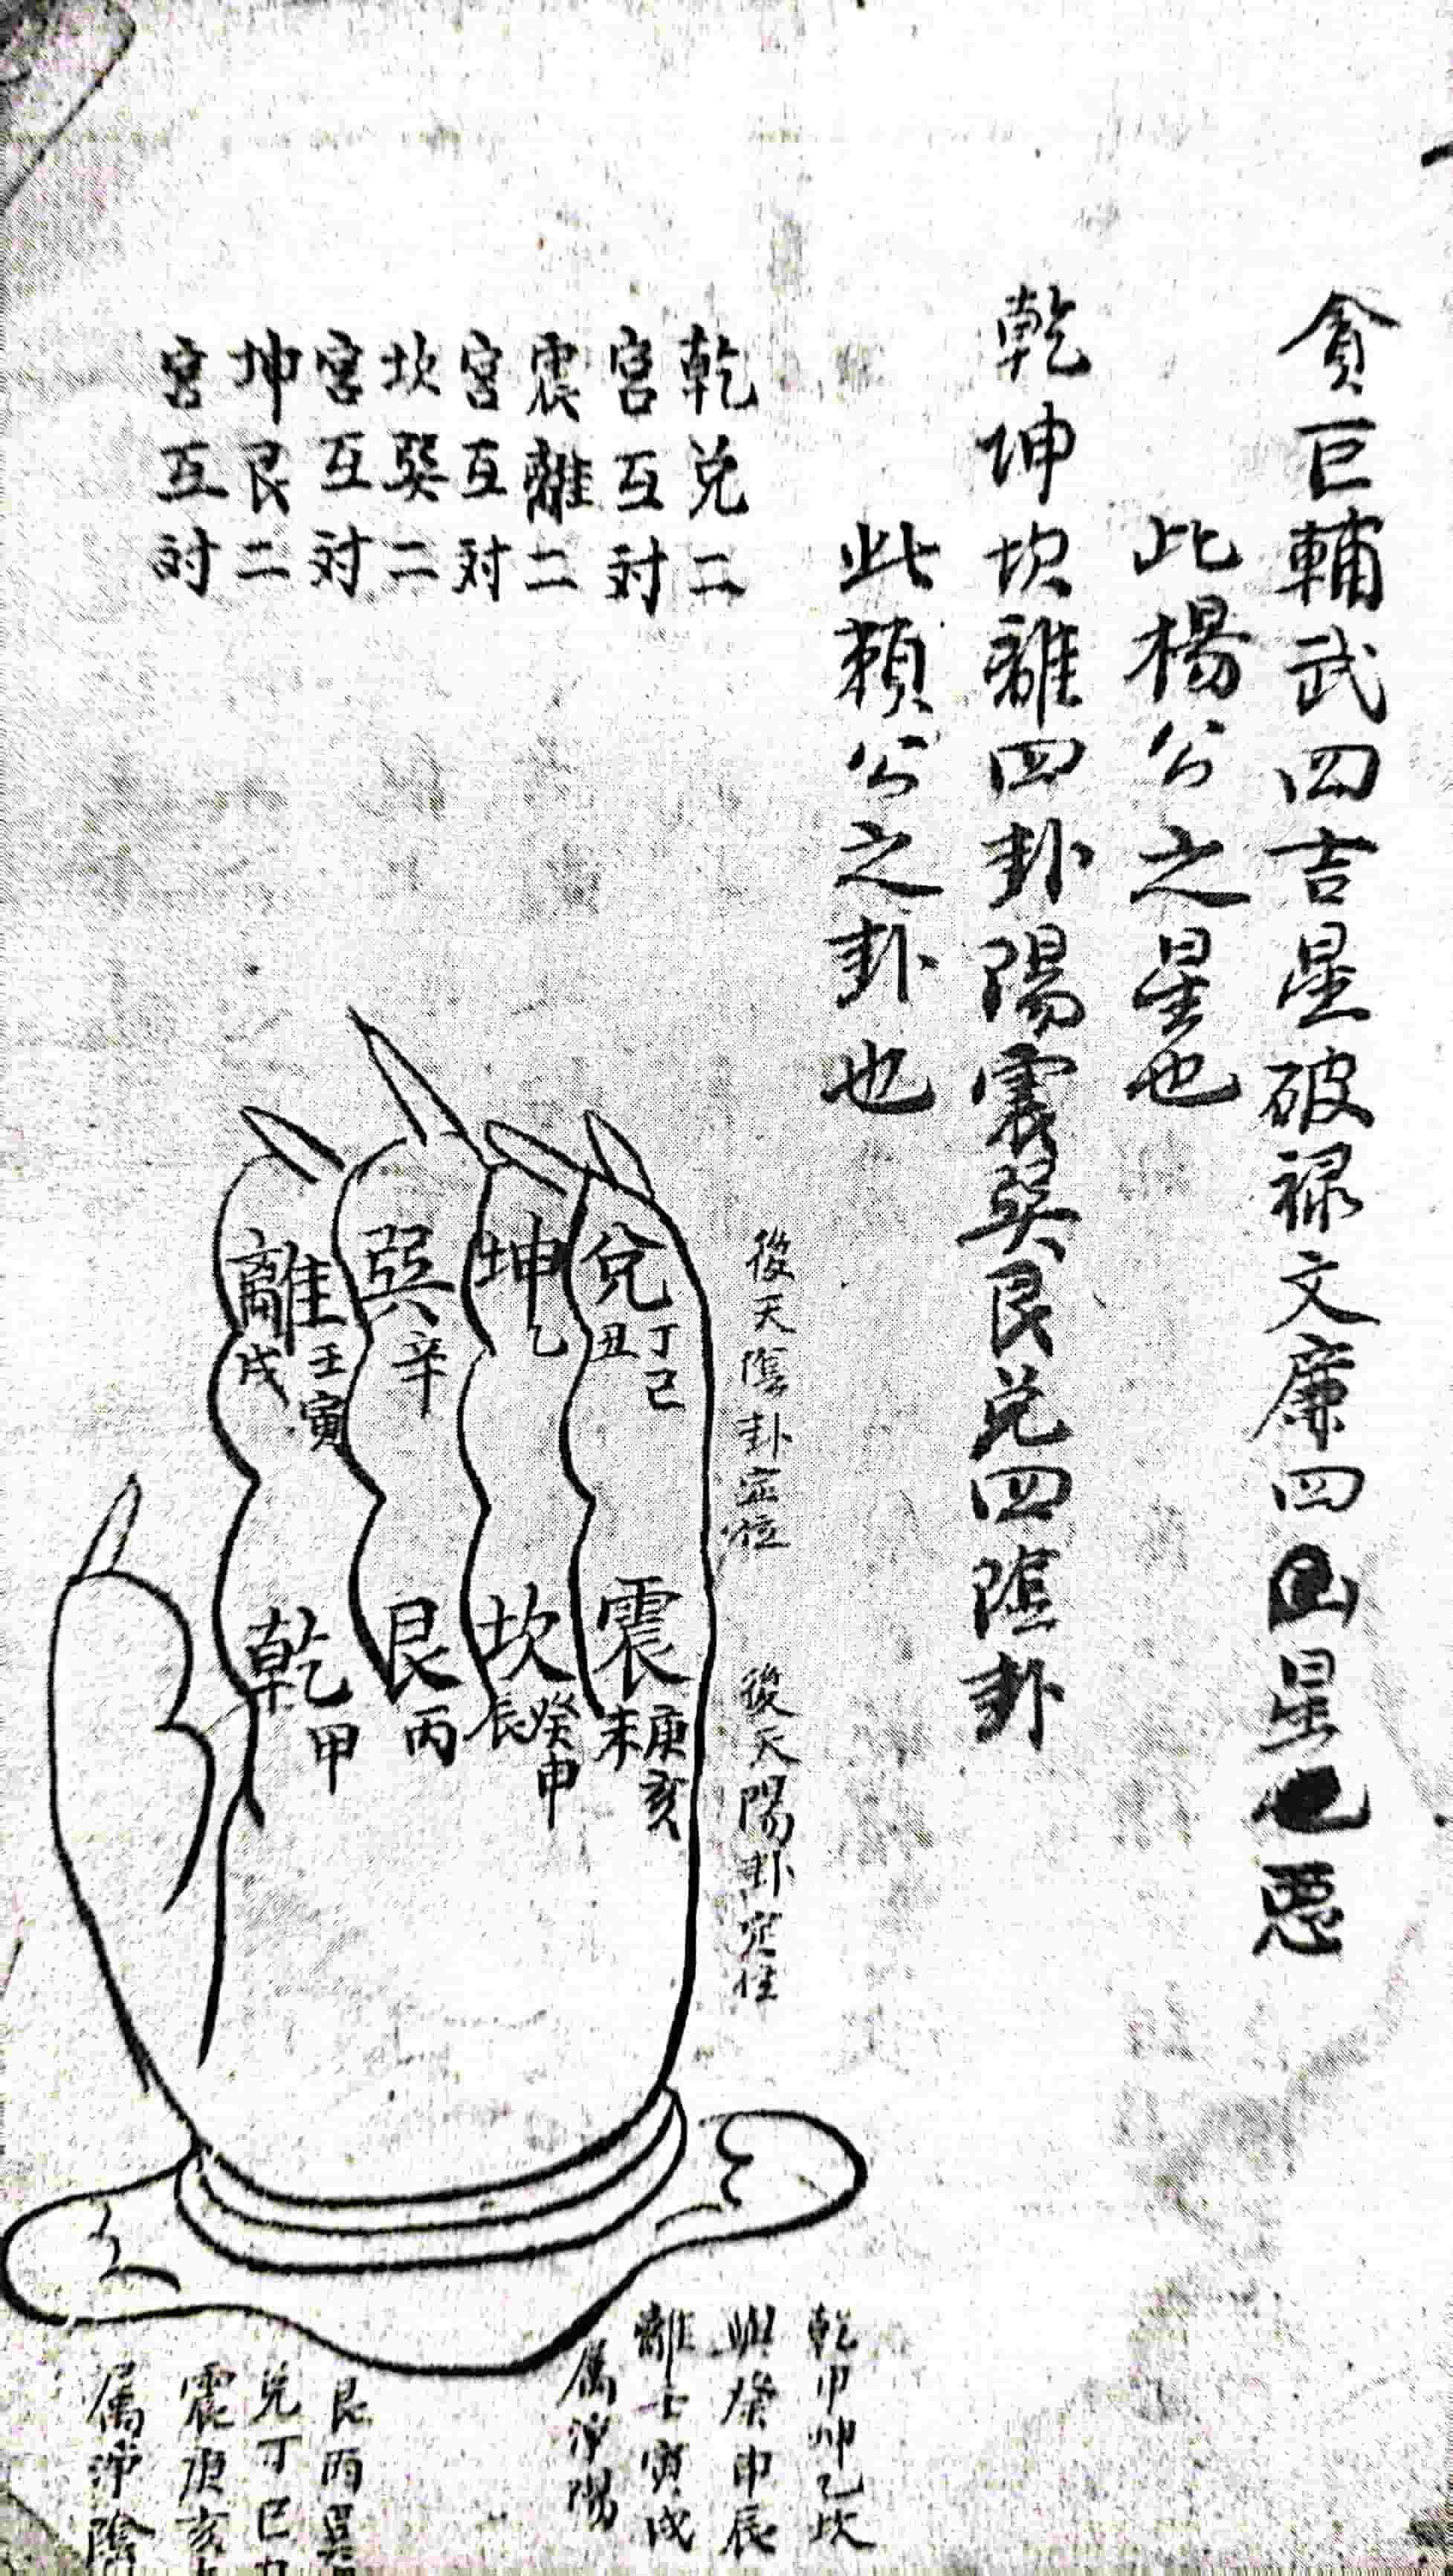 貪巨輔武四吉星破祿文廉四凶星也惡
此楊公之星也
乾坤坎離四卦陽震巽艮兌四陰卦
此賴公之卦也
乾兌二
宮互对
震離二
宮互对
坎巽二
宮互对
坤艮二
宮互討
後天陰卦定位
兌
丁巳
丑
坤
乙
巽
辛
離
壬寅
戌
後天陽卦定位
震
庚亥
未
坎
癸申
辰
艮
丙
乾
甲
乾甲坤乙坎
癸申辰
離壬寅戌
属淨陽
艮丙巽
兌丁巳
震庚亥
属淨陰